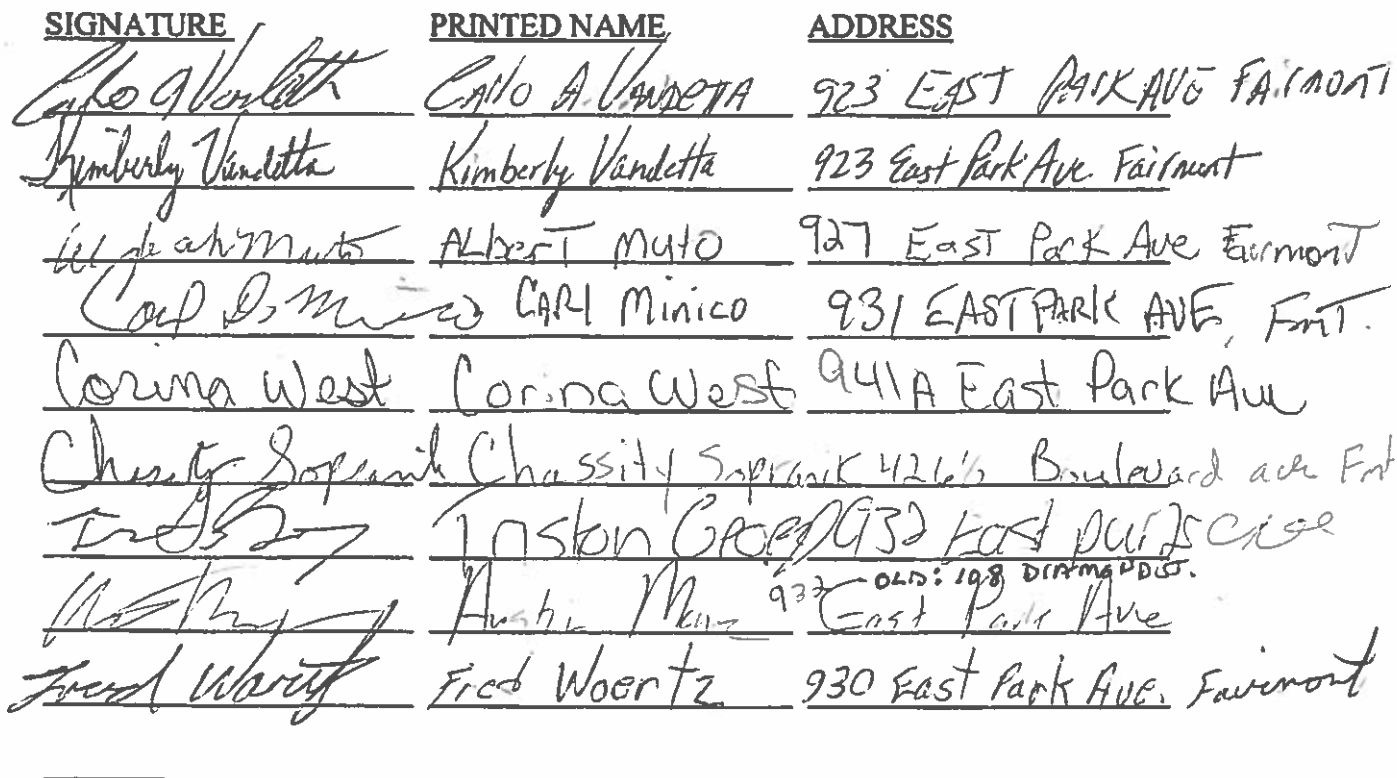 SIGNATURE PRINTED NAME ADDRESS
Carlo A Vandetta CArlo A. VANDETTA 923 EAST PARK AVE FAIRMONT
Kimberly Vandetta Kimberly Vandetta 923 East Park Ave. Fairmont
Muto AlberT Muto 927 East Park Ave Fairmont
Carl D. Minico CARl Minico 931 EAST PARK AVE, FmT.
Corina West Corina West 941A East Park Ave
Chassity Sopranik Chassity Sopranik 426½ Boulevard ave Fmt
932 East
OLD: 198 DIAMOND ST.
Austin 932 East Park Ave
Fred Woertz Fred Woertz 930 East Park Ave. Fairmont